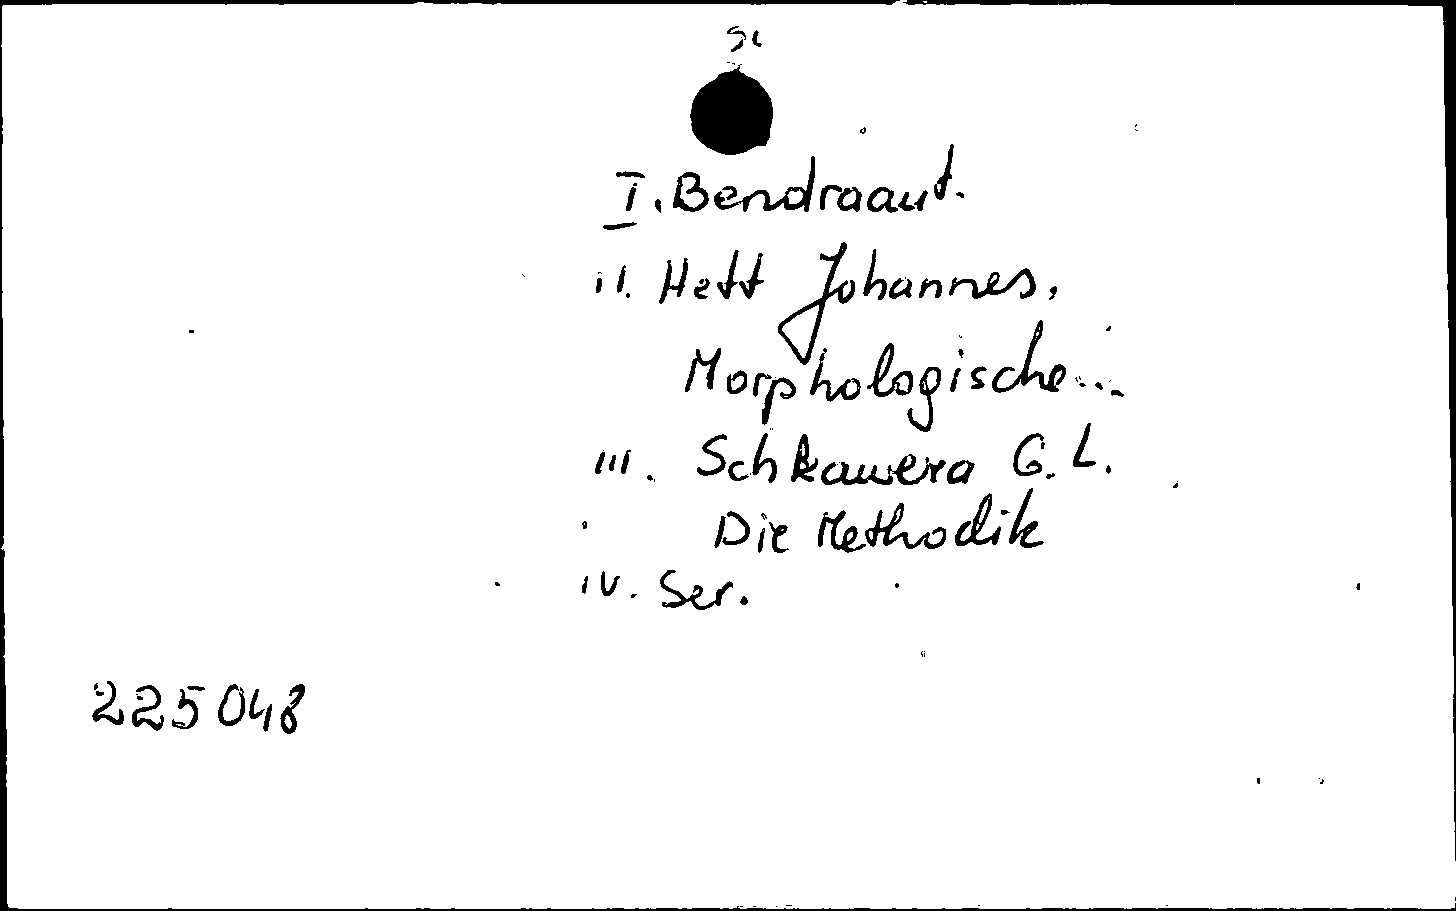 I. Bendraaut.
II. Hett Johannes,
Morphologische...
III. Schkawera G. L.
Die Methodik
IV. Ser.
225048